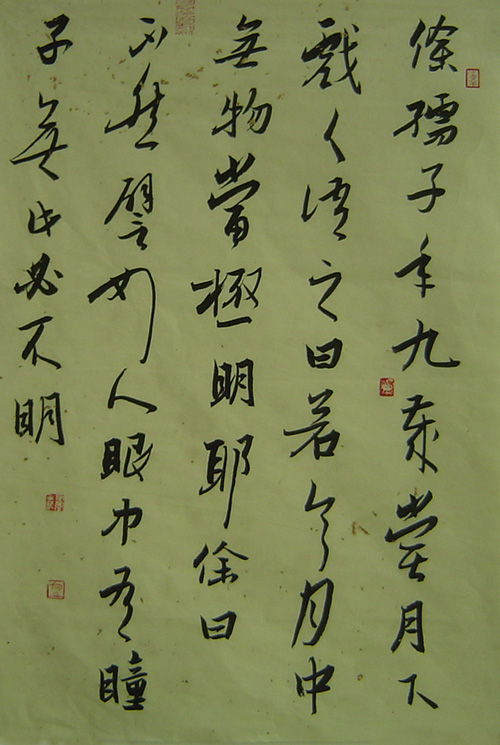 徐孺子年九歲嘗月下
戲人語之曰若令月中
無物當極明耶徐曰
不然譬如人眼中有瞳
子無此必不明